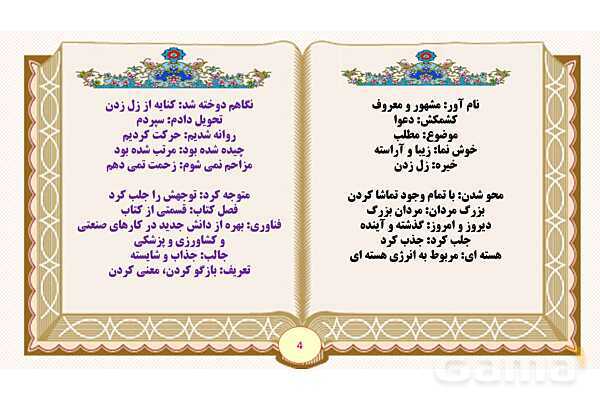 نام آور: مشهور و معروف
کشمکش: دعوا
موضوع: مطلب
خوش نما: زیبا و آراسته
خیره: زل زدن
محو شدن: با تمام وجود تماشا کردن
بزرگ مردان: مردان بزرگ
دیروز و امروز: گذشته و آینده
جلب کرد: جذب کرد
هسته ای: مربوط به انرژی هسته ای
نگاهم دوخته شد: کنایه از زل زدن
تحویل دادم: سپردم
روانه شدیم: حرکت کردیم
چیده شده بود: مرتب شده بود
مزاحم نمی شوم: زحمت نمی دهم
متوجه کرد: توجهش را جلب کرد
فصل کتاب: قسمتی از کتاب
فناوری: بهره از دانش جدید در کارهای صنعتی
و کشاورزی و پزشکی
جالب: جذاب و شایسته
تعریف: بازگو کردن، معنی کردن
4
Gama